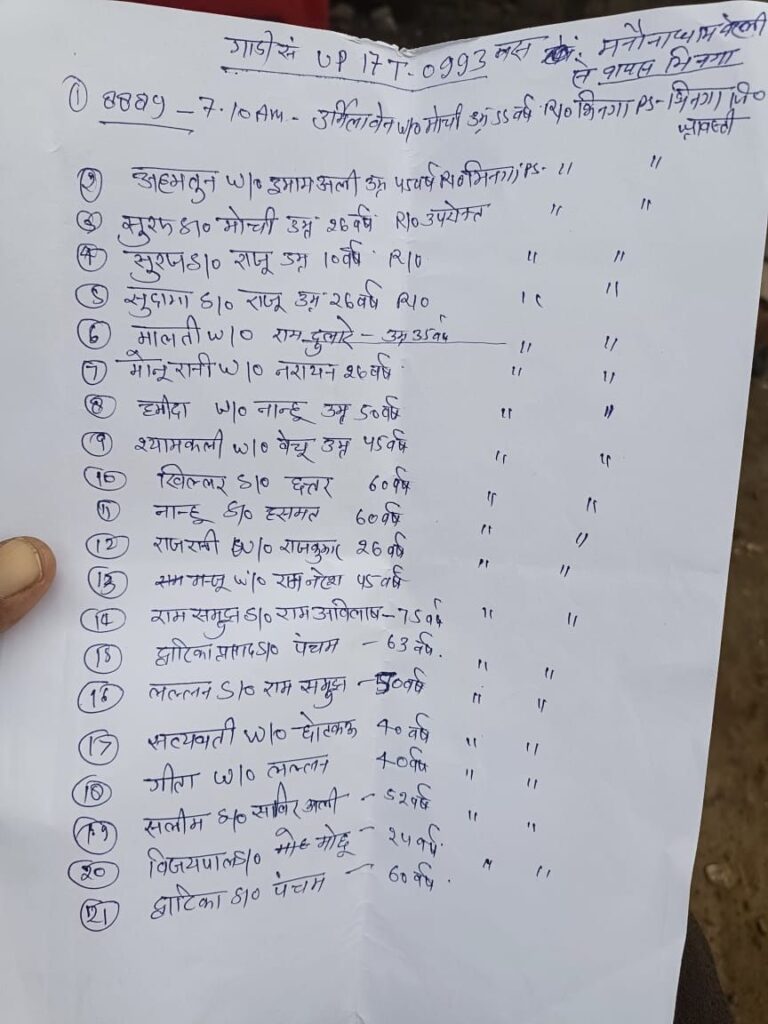 गाडी सं UP 17 T-0993 बस मनौनाधाम बरेली
से वापस भिनगा
① 8889 - 7.10 Am. - उर्मिला वेन w/o मोची उम्र 55 वर्ष R/o भिनगा PS- भिनगा जि०
श्रावस्ती
② अहमतुन w/o इमाम अली उम्र 45 वर्ष R/o भिनगा PS- " "
③ सुरज S/o मोची उम्र 26 वर्ष R/o उपरोक्त " "
④ सुरज S/o राजू उम्र 10 वर्ष R/o " "
⑤ सुदामा S/o राजू उम्र 26 वर्ष R/o " "
⑥ मालती w/o राम दुलारे - उम्र 35 वर्ष " "
⑦ मोनू रानी w/o नरायन 26 वर्ष " "
⑧ हमीदा w/o नान्हू उम्र 50 वर्ष " "
⑨ श्यामकली w/o वेचू उम्र 45 वर्ष " "
⑩ खिल्लर S/o छत्तर 60 वर्ष " "
⑪ नान्हू S/o हसमत 60 वर्ष " "
⑫ राजरानी w/o राजकुमार 26 वर्ष " "
⑬ मन्जू w/o राम नरेश 45 वर्ष " "
⑭ राम समुझ S/o राम अभिलाष - 75 वर्ष " "
⑮ द्वारिका प्रसाद S/o पंचम - 63 वर्ष. " "
⑯ लल्लन S/o राम समुझ - 50 वर्ष " "
⑰ सत्यवती w/o छोटकऊ 40 वर्ष " "
⑱ गीता w/o लल्लन 40 वर्ष " "
⑲ सलीम S/o साबिर अली - 52 वर्ष " "
⑳ विजयपाल S/o मोहू - 24 वर्ष " "
㉑ द्वारिका S/o पंचम - 60 वर्ष.